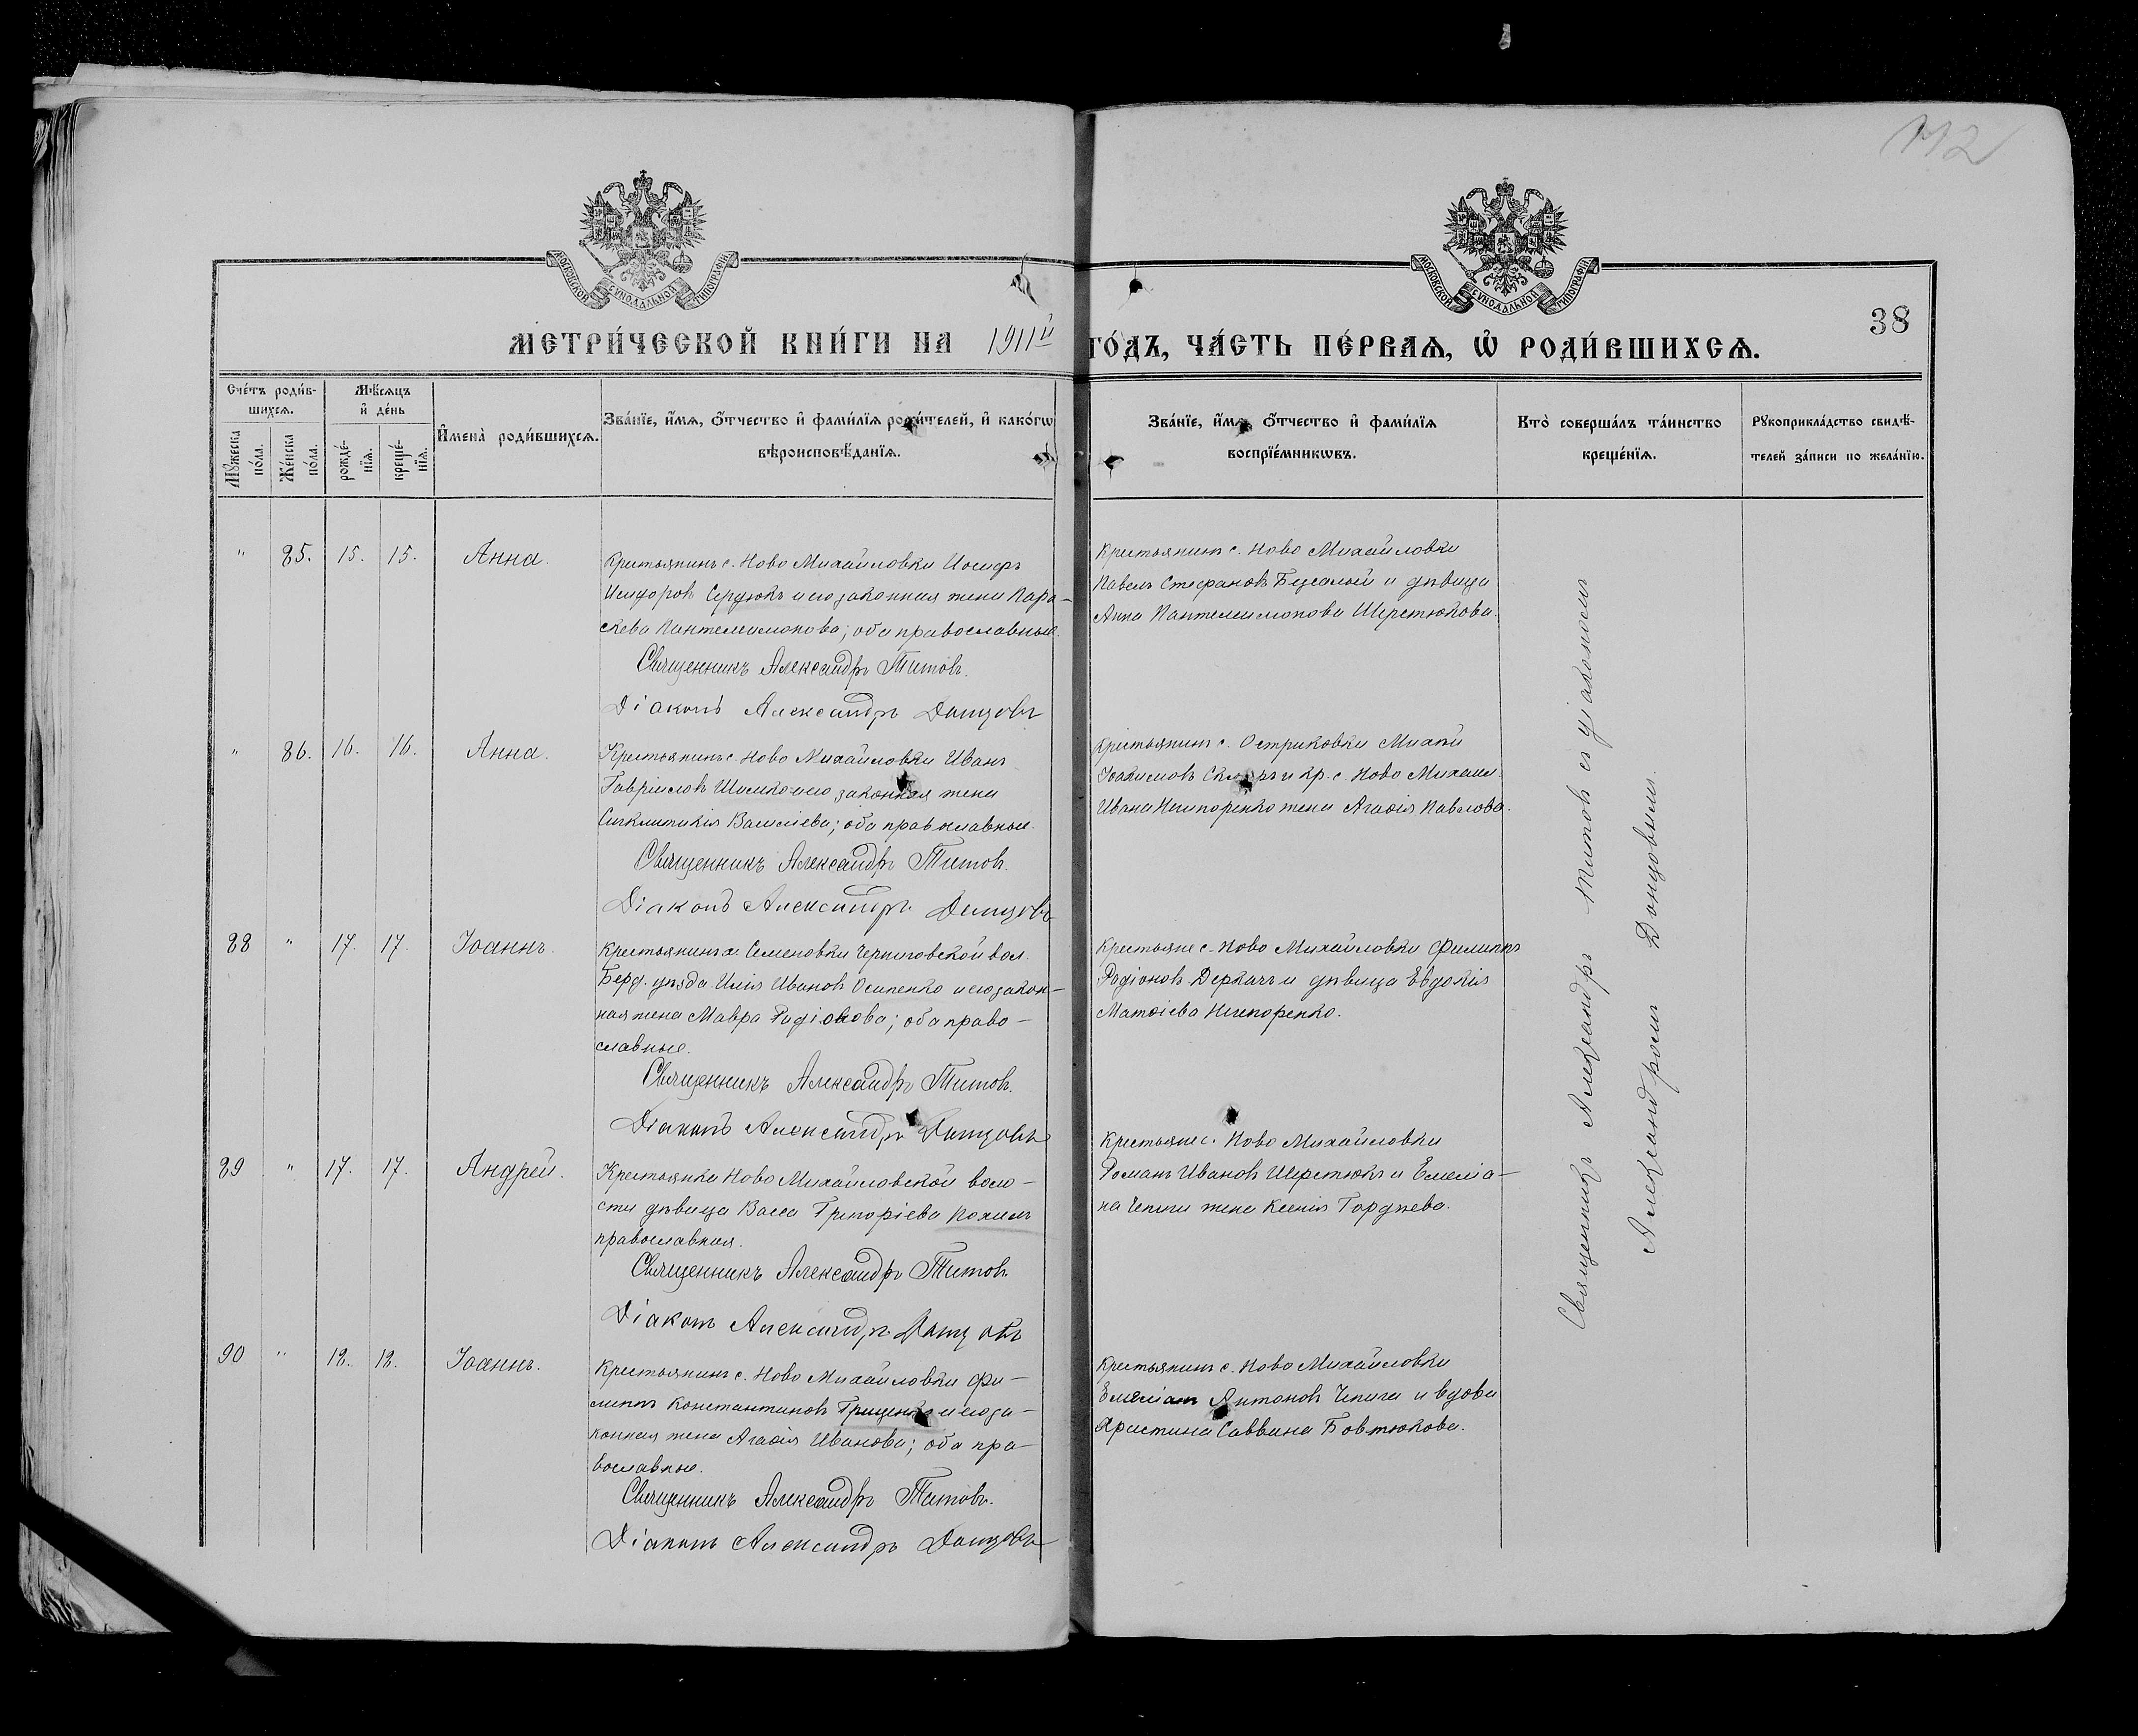 112
МОСКОВСКОЙ СѴНОДАЛЬНОЙ ТИПОГРАФІИ
МОСКОВСКОЙ СѴНОДАЛЬНОЙ ТИПОГРАФІИ
38
МЕТРИ́ЧЕСКОЙ КНИ́ГИ НА 1911й ГО́ДЪ, ЧА́СТЬ ПЕ́РВАѦ, Ѡ РОДИ́ВШИХСѦ.
Сче́тъ роди́в-
шихсѧ.
Мꙋжеска по́ла.
Же́нска по́ла.
Мѣ́сѧцъ
и҆ де́нь
рожде́-
нїѧ.
креще́-
нїѧ.
И҆мена̀ роди́вшихсѧ.
Зва́нїе, и҆́мѧ, ѻ҆́тчество и҆ фами́лїѧ роди́телей, и҆ како́гѡ
вѣроисповѣ́данїѧ.
Зва́нїе, и҆́мѧ, ѻ҆́тчество и҆ фами́лїѧ
воспрїе́мникѡвъ.
Кто̀ соверша́лъ та́инство
креще́нїѧ.
Рꙋкоприкла́дство свидѣ́-
телей за́писи по жела́нїю.
" 85. 15. 15. Анна.
Крестьянинъ с. Ново Михайловки Іосифъ
Исидоровъ Сердюкъ и его законная жена Пара-
скева Пантелеимонова; оба православные.
Священникъ Александръ Титовъ.
Діаконъ Александръ Донцовъ
Крестьянинъ с. Ново Михайловки
Павелъ Стефановъ и дѣвица
Анна Пантелеимонова Шеретюкова.
" 86. 16. 16. Анна.
Крестьянинъ с. Ново Михайловки Иванъ
Гавріиловъ Шило и его законная жена
Сигклитикія Василіева; оба православные.
Священникъ Александръ Титовъ.
Діаконъ Александръ Донцовъ
Крестьянинъ с. Остриковки
Іоакимовъ и кр. с. Ново Михаил.
Ивана Нечипоренко жена Агафія Павлова.
88 " 17. 17. Іоаннъ.
Крестьянинъ с. Семеновки Черниговской вол.
Берд. уѣзда Илія Ивановъ Осипенко и его закон-
ная жена Мавра Радіонова; оба право-
славные.
Священникъ Александръ Титовъ.
Діаконъ Александръ Донцовъ
Крестьяне с. Ново Михайловки Филиппъ
Радіоновъ Деркачъ и дѣвица Евдокія
Матѳіева Нечипоренко.
89 " 17. 17. Андрей.
Крестьянка Ново Михайловской воло-
сти дѣвица Васса Григоріева Похилъ
православная.
Священникъ Александръ Титовъ
Діаконъ Александръ Донцовъ
Крестьяне с. Ново Михайловки
Романъ Ивановъ Шеретюкъ и Емелiа-
на Чепиги жена Ксенія Гордѣева.
90 " 18. 18. Іоаннъ.
Крестьянинъ с. Ново Михайловки Фи-
липпъ Константиновъ Грищенко и его за-
конная жена Агафія Иванова; оба пра-
вославные.
Священникъ Александръ Титовъ.
Діаконъ Александръ Донцовъ
Крестьянинъ с. Ново Михайловки
Емеліанъ Антоновъ Чепига и вдова
Христина Саввина Бовтюкова.
Священникъ Александръ Титовъ съ діакономъ
Александромъ Донцовымъ.